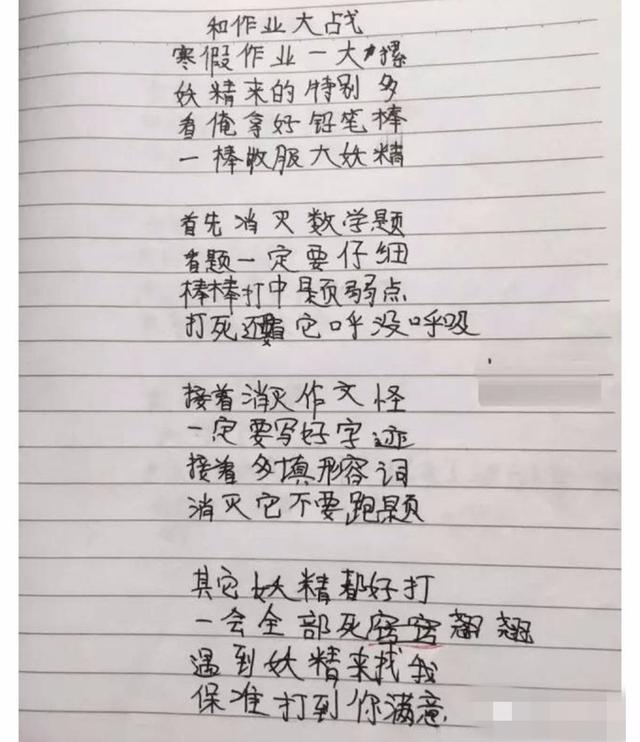 和作业大战
寒假作业一大摞
妖精来的特别多
看俺拿好铅笔棒
一棒收服大妖精
首先消灭数学题
看题一定要仔细
棒棒打中题弱点
打死还要看它呼没呼吸
接着消灭作文怪
一定要写好字迹
接着多填形容词
消灭它不要跑题
其它妖精都好打
一会全部死窍窍翘翘
遇到妖精来找我
保准打到你满意